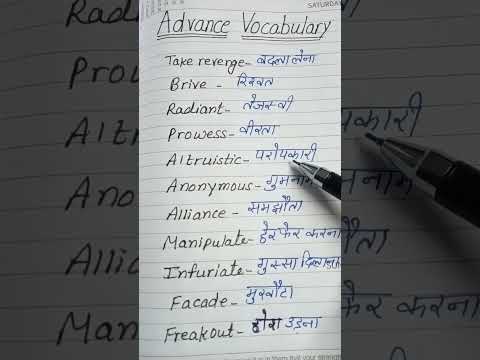 SATURDA
Advance Vocabulary
Take reverge- बदला लेना
Brive - रिश्वत
Radiant- तेजस्वी
Prowess- वीरता
Altruistic- परोपकारी
Anonymous- गुमनाम
Alliance - समझौता
Manipulate- हेरफेर करना
Infuriate- गुस्सा दिलाना
Facade- मुखौटा
Freakout- होश उड़ना